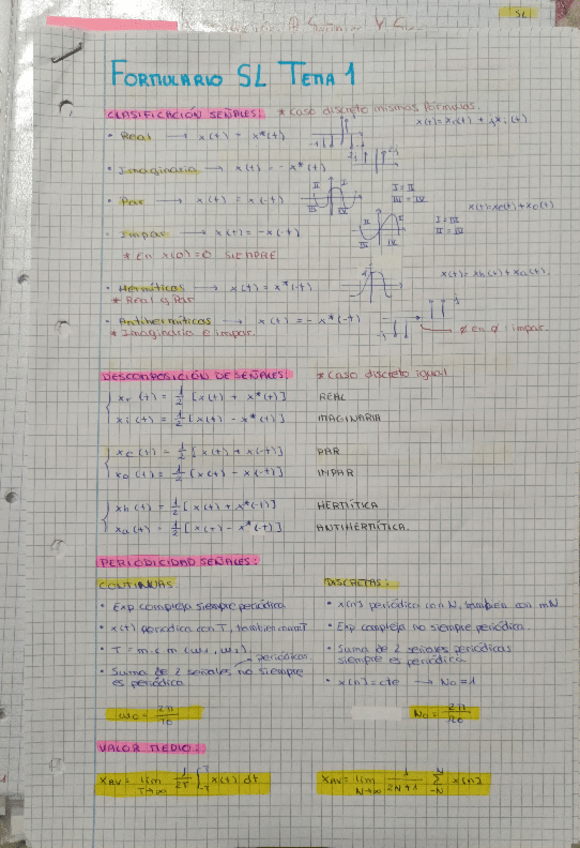 SL
FORMULARIO SL TEMA 1
CLASIFICACIÓN SEÑALES: * Caso discreto mismas fórmulas.
• Real → x(t) = x*(t)
• Imaginaria → x(t) = -x*(t)
• Par → x(t) = x(-t)
I = II
III = IV
• Impar → x(t) = -x(-t)
x(t)=xe(t)+xo(t)
I = III
II = IV
* En x(0)=0 SIEMPRE
• Hermíticas → x(t) = x*(-t)
x(t)= xh(t)+xa(t)
* Real y Par
• Antihermíticas → x(t) = -x*(-t)
* Imaginaria e impar.
DESCOMPOSICIÓN DE SEÑALES: * Caso discreto igual
xr(t) = 1/2 [x(t) + x*(t)] REAL
xi(t) = 1/2 [x(t) - x*(t)] IMAGINARIA
xe(t) = 1/2 [x(t) + x(-t)] PAR
xo(t) = 1/2 [x(t) - x(-t)] IMPAR
xh(t) = 1/2 [x(t) + x*(-t)] HERMÍTICA
xa(t) = 1/2 [x(t) - x*(-t)] ANTIHERMÍTICA.
PERIODICIDAD SEÑALES:
CONTINUAS:
• Exp compleja siempre periódica
• x(t) periódica con T, también con mT
• T = m.c.m (ω1, ω2).
• Suma de 2 señales periódicas no siempre
es periódica
ω0 = 2π/T0
DISCRETAS:
• x[n] periódica con N, también con mN
• Exp compleja no siempre periódica.
• Suma de 2 señales periódicas
siempre es periódica
• x[n] = cte → N0 = 1
N0 = 2π/Ω0
VALOR MEDIO:
XAV = lim T→∞ 1/2T ∫-T T x(t) dt
XAV = lim N→∞ 1/2N+1 Σ-N N x[n]